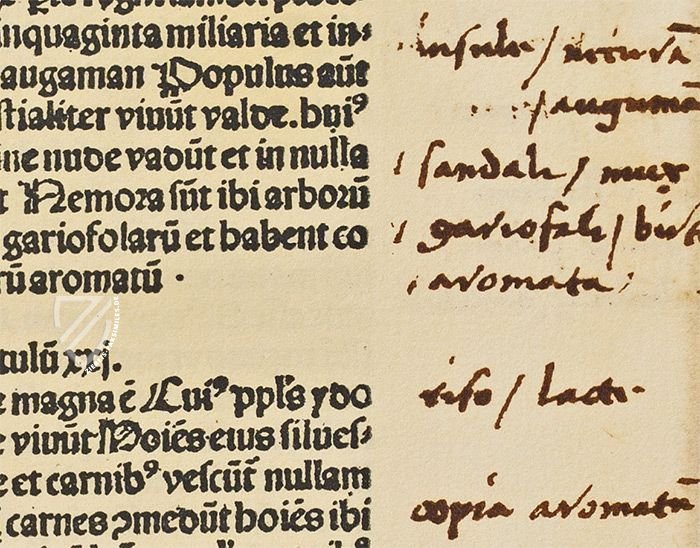 inquaginta miliaria et in⸗
augaman Populus aūt
stialiter viuūt valde. huiꝰ
ine nude vadūt et in nulla
t Nemora sūt ibi arborū
gariofolarū et habent co
rū aromatū ·
tulū xxj.
e magna ē Cuiꝰ ppl's ydo
e viuūt Hoiēs eius silues⸗
e et carnibꝰ vescūt nullam
carnes ꝯmedūt hoiēs ibi
insule /
/ augumā
sandali / nux
gariofali /
aromata
riso / lacte
copia aromatū